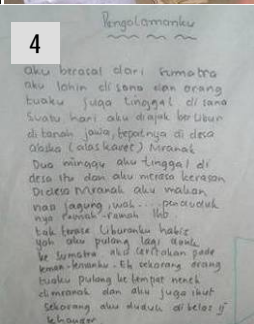 Pengalamanku
4
aku berasal dari sumatra
aku lahir di sana dan orang
tuaku juga tinggal di sana
Suatu hari aku diajak berlibur
di tanah jawa, tepatnya di desa
(alas karet) Mranak
Dua minggu aku tinggal di
desa itu dan aku merasa kerasan
Di desa Mranak aku makan
nasi jagung, wah.... penduduk
nya ramah-ramah lho.
tak terasa liburanku habis
yah aku pulang lagi
ke Sumatra. aku ceritakan pada
teman-temanku. Eh sekarang orang
tuaku pulang ke tempat nenek
di mranak dan aku juga ikut
sekarang aku duduk di kelas